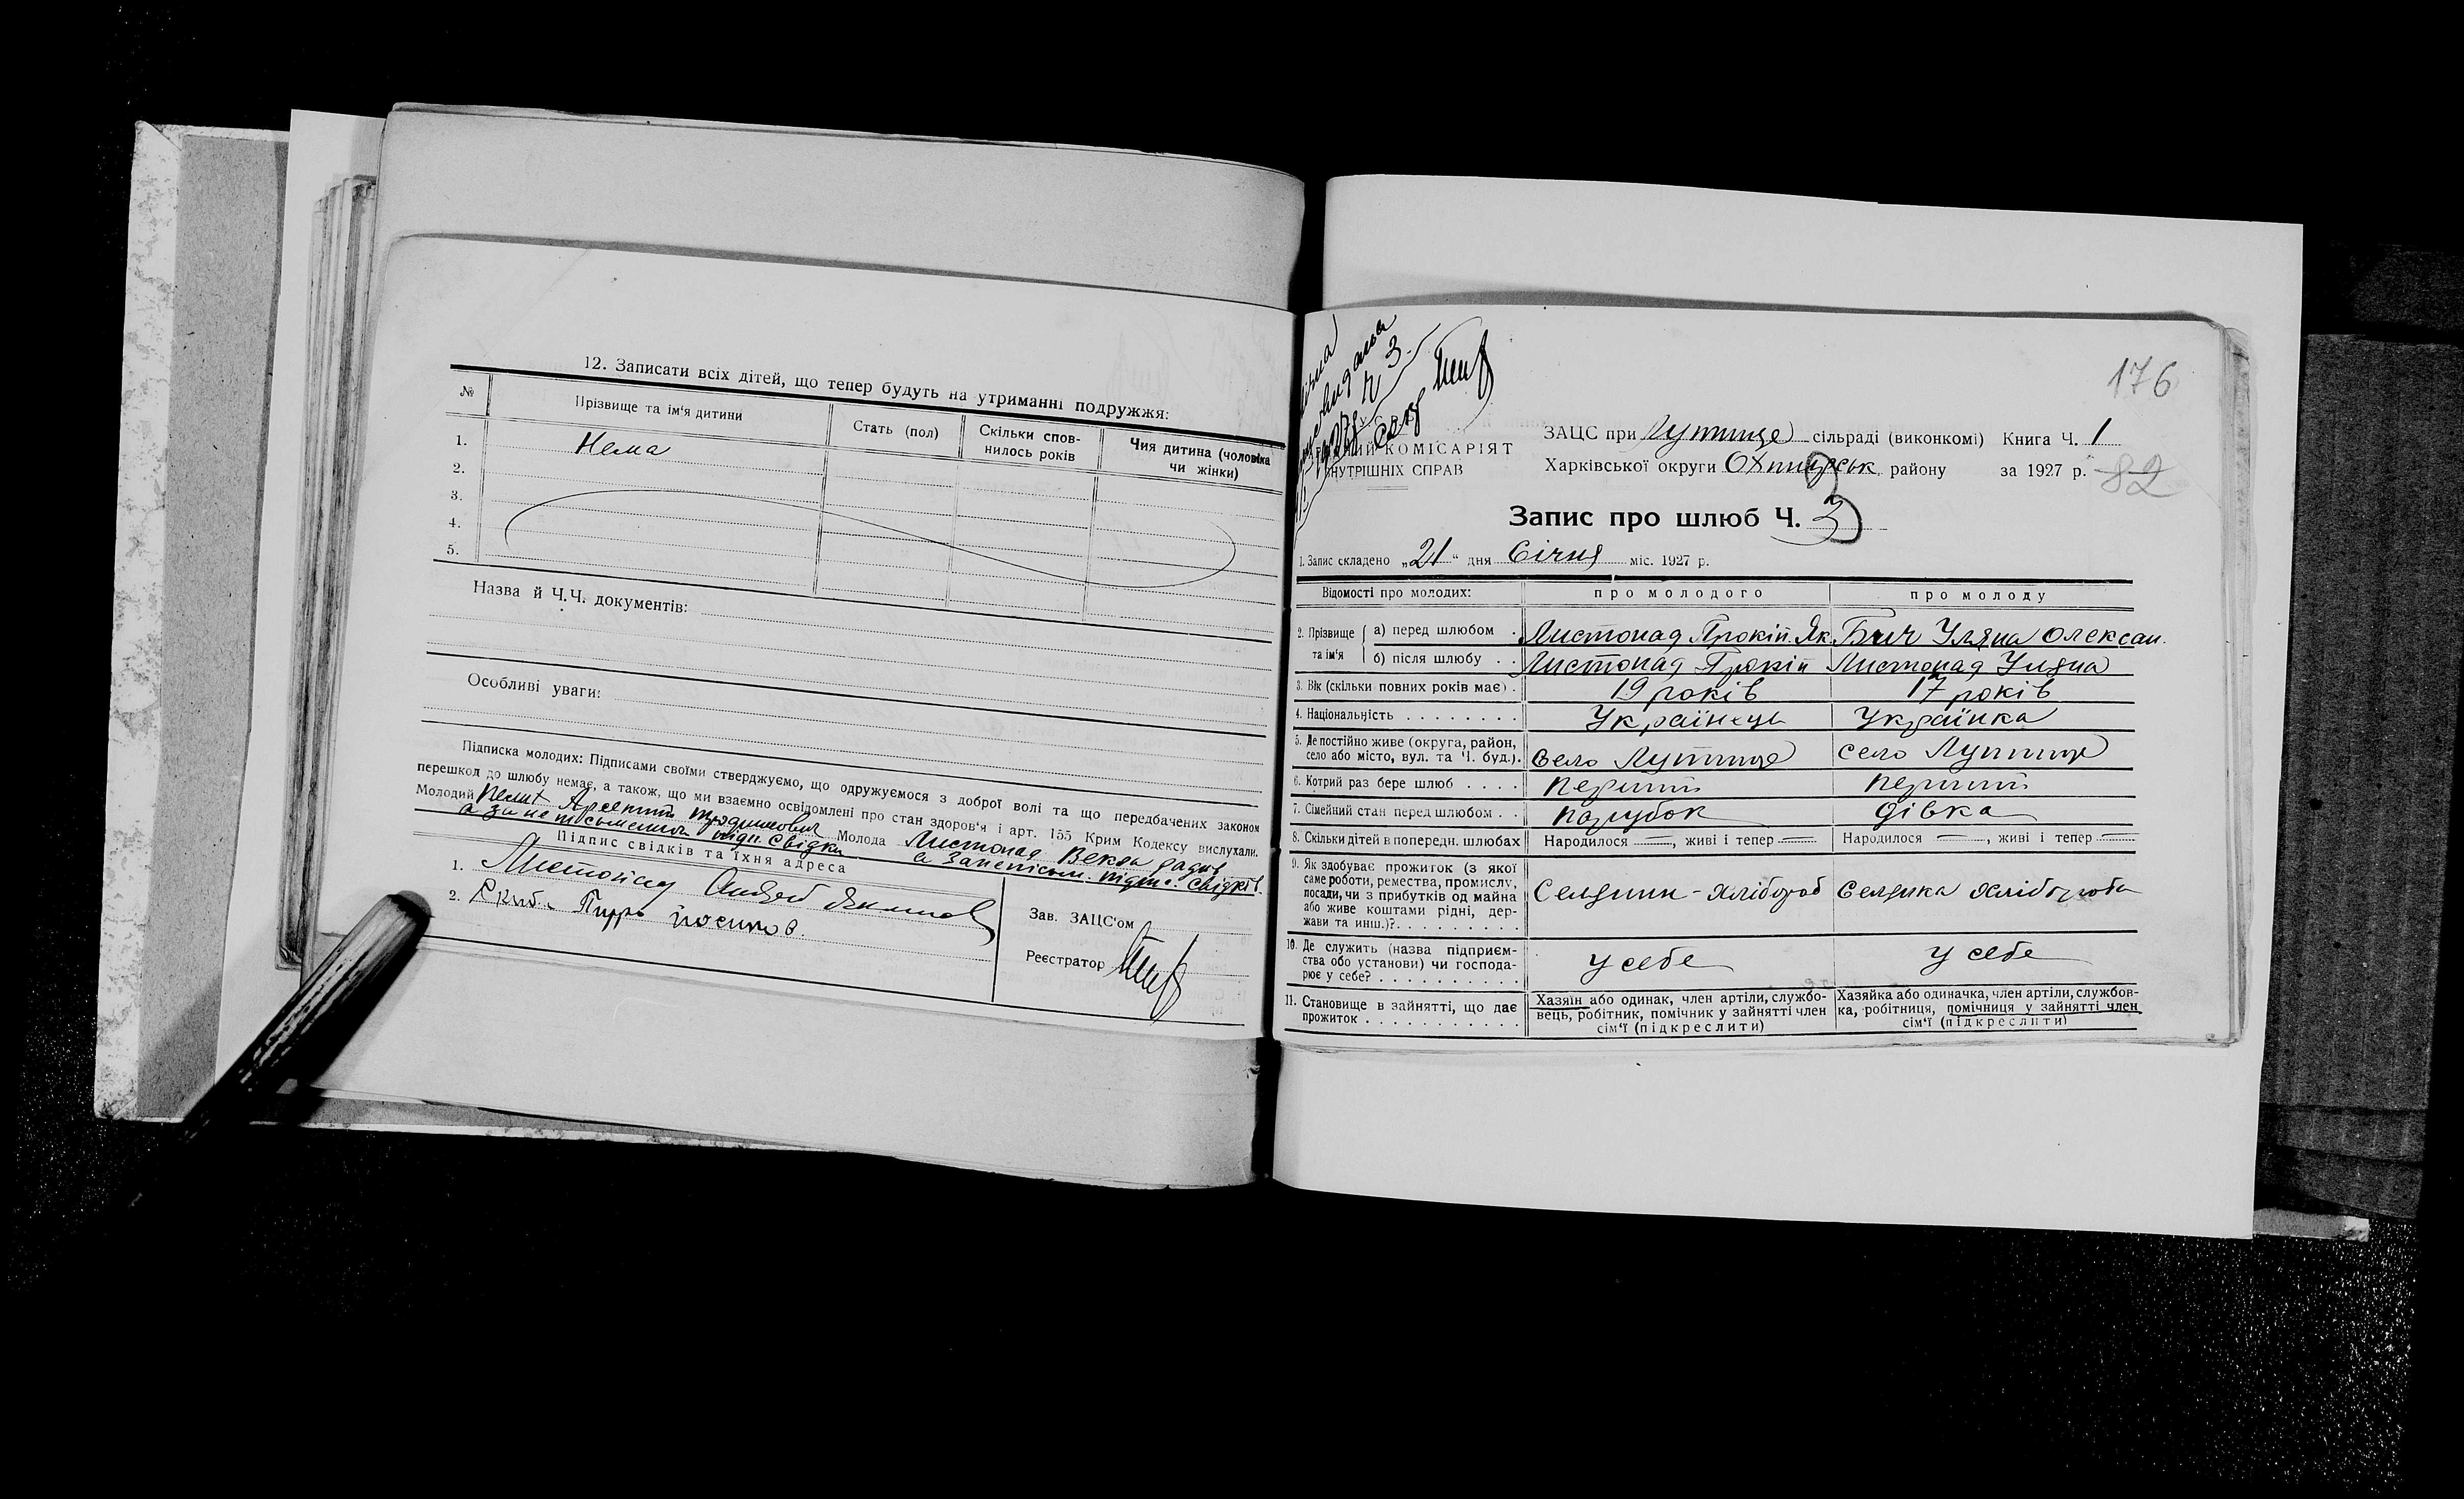 12. Записати всіх дітей, що тепер будуть на утриманні подружжя:
№ Прізвище та ім'я дитини Стать (пол) Скільки сповнилось років Чия дитина (чоловіка чи жінки)
1. Нема
2.
3.
4.
5.
Назва й Ч.Ч. документів:
Особливі уваги:
Підписка молодих: Підписами своїми стверджуємо, що одружуємося з доброї волі та що передбачених законом
перешкод до шлюбу немає, а також, що ми взаємно освідомлені про стан здоров'я і арт. 155 Крим Кодексу вислухали.
Молодий Арсентій Молода Листопад Векла
а за підп. свідки а за неписьм. підп. свідків.
Підпис свідків та їхня адреса
1. Листопад Андрей
2. Скиба Петро
Зав. ЗАЦС'ом
Реєстратор
176
У С Р Р
КОМІСАРІЯТ
ВНУТРІШНІХ СПРАВ
ЗАЦС при Лутище сільраді (виконкомі) Книга Ч. 1
Харківської округи Охтирськ району за 1927 р. 82
Запис про шлюб Ч. 3
1. Запис складено „21" дня Січня міс. 1927 р.
Відомості про молодих: про молодого про молоду
2. Прізвище та ім'я а) перед шлюбом Листопад Прокіп. Як. Бич Уляна Олексан.
б) після шлюбу Листопад Прокіп Листопад Уляна
3. Вік (скільки повних років має) 19 років 17 років
4. Національність Українець Українка
5. Де постійно живе (округа, район,
село або місто, вул. та Ч. буд.). Село Лутище село Лутище
6. Котрий раз бере шлюб перший перший
7. Сімейний стан перед шлюбом парубок дівка
8. Скільки дітей в попередн. шлюбах Народилося —, живі і тепер — Народилося —, живі і тепер —
9. Як здобуває прожиток (з якої
саме роботи, ремества, промислу,
посади, чи з прибутків од майна
або живе коштами рідні, дер-
жави та инш.)? Селянин - хлібороб Селянка хлібороба
10. Де служить (назва підприєм-
ства або установи) чи господа-
рює у себе? у себе у себе
11. Становище в зайнятті, що дає
прожиток
Хазяїн або одинак, член артіли, службо-
вець, робітник, помічник у зайнятті член
сім'ї (підкреслити)
Хазяйка або одиначка, член артіли, службов-
ка, робітниця, помічниця у зайнятті член
сім'ї (підкреслити)